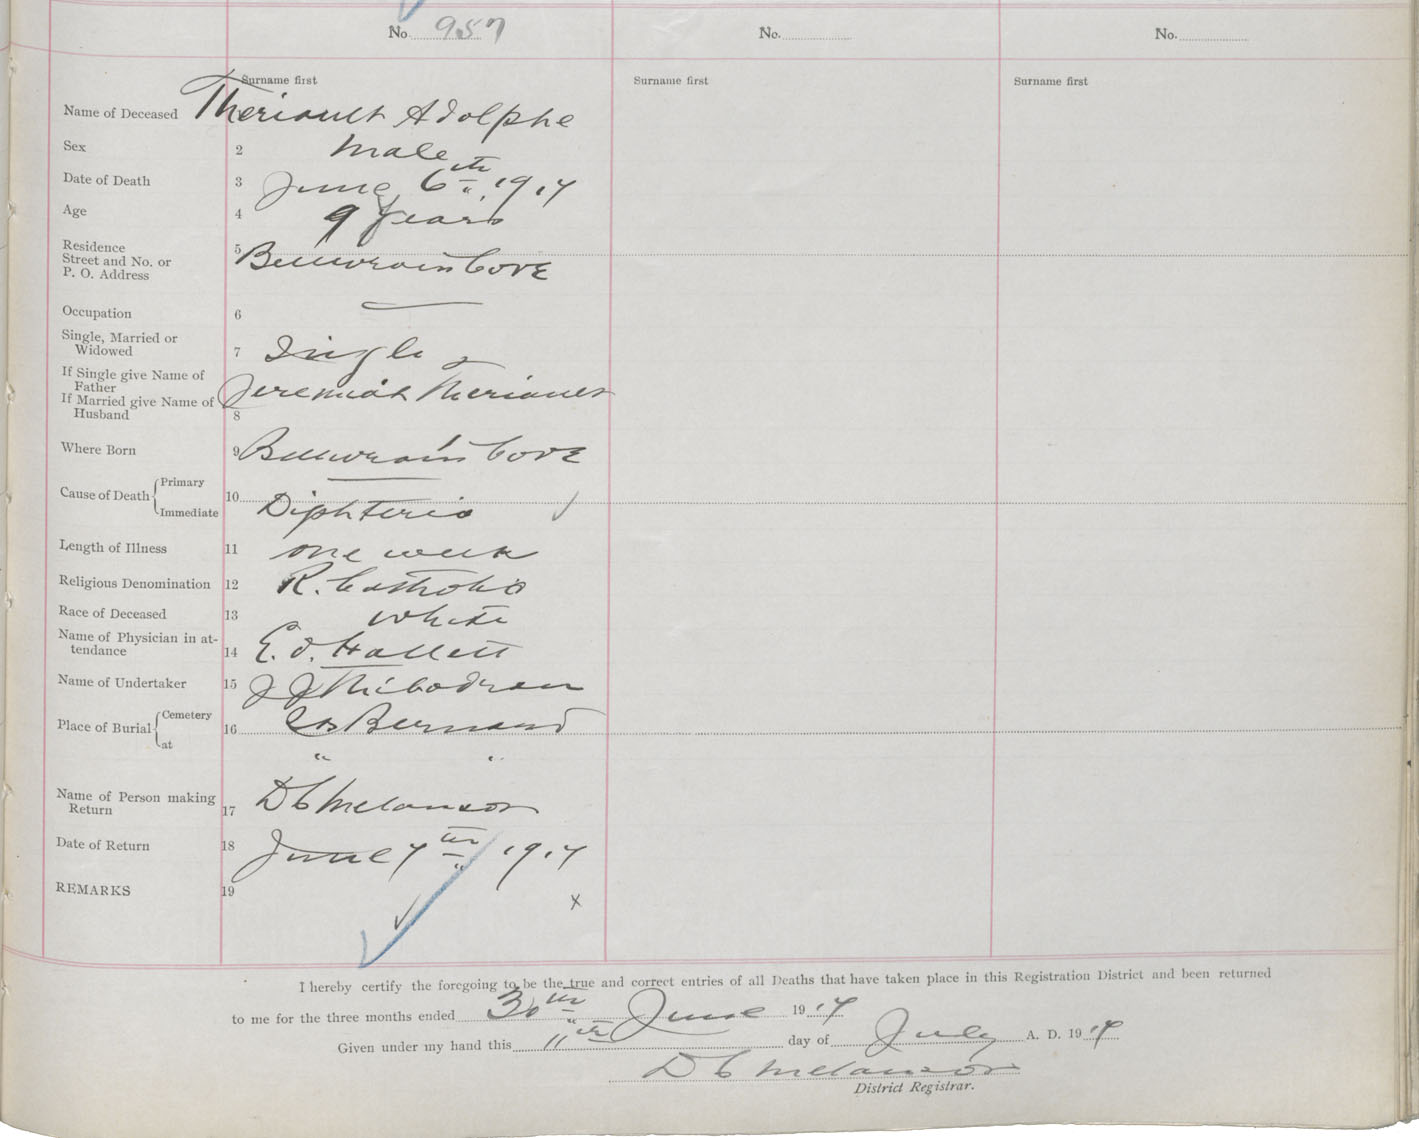 No. 957 No. No.
Surname first Surname first Surname first
Name of Deceased Theriault Adolphe
Sex 2 Male
Date of Death 3 June 6th 1917
Age 4 9 years
Residence
Street and No. or
P. O. Address 5 Cove
Occupation 6 —
Single, Married or
Widowed 7 Single
If Single give Name of
Father Jeremiah Theriault
If Married give Name of
Husband 8
Where Born 9 Cove
Cause of Death { Primary
Immediate 10 Diphteria
Length of Illness 11 one week
Religious Denomination 12 R. Catholic
Race of Deceased 13 White
Name of Physician in at-
tendance 14 E. Hallett
Name of Undertaker 15 J J Thibodeau
Place of Burial { Cemetery
at 16 Bernard
" "
Name of Person making
Return 17 D C Melanson
Date of Return 18 June 7th 1917
REMARKS 19 x
I hereby certify the foregoing to be the true and correct entries of all Deaths that have taken place in this Registration District and been returned
to me for the three months ended 30th June 1917
Given under my hand this 11th day of July A. D. 1917
D C Melanson
District Registrar.